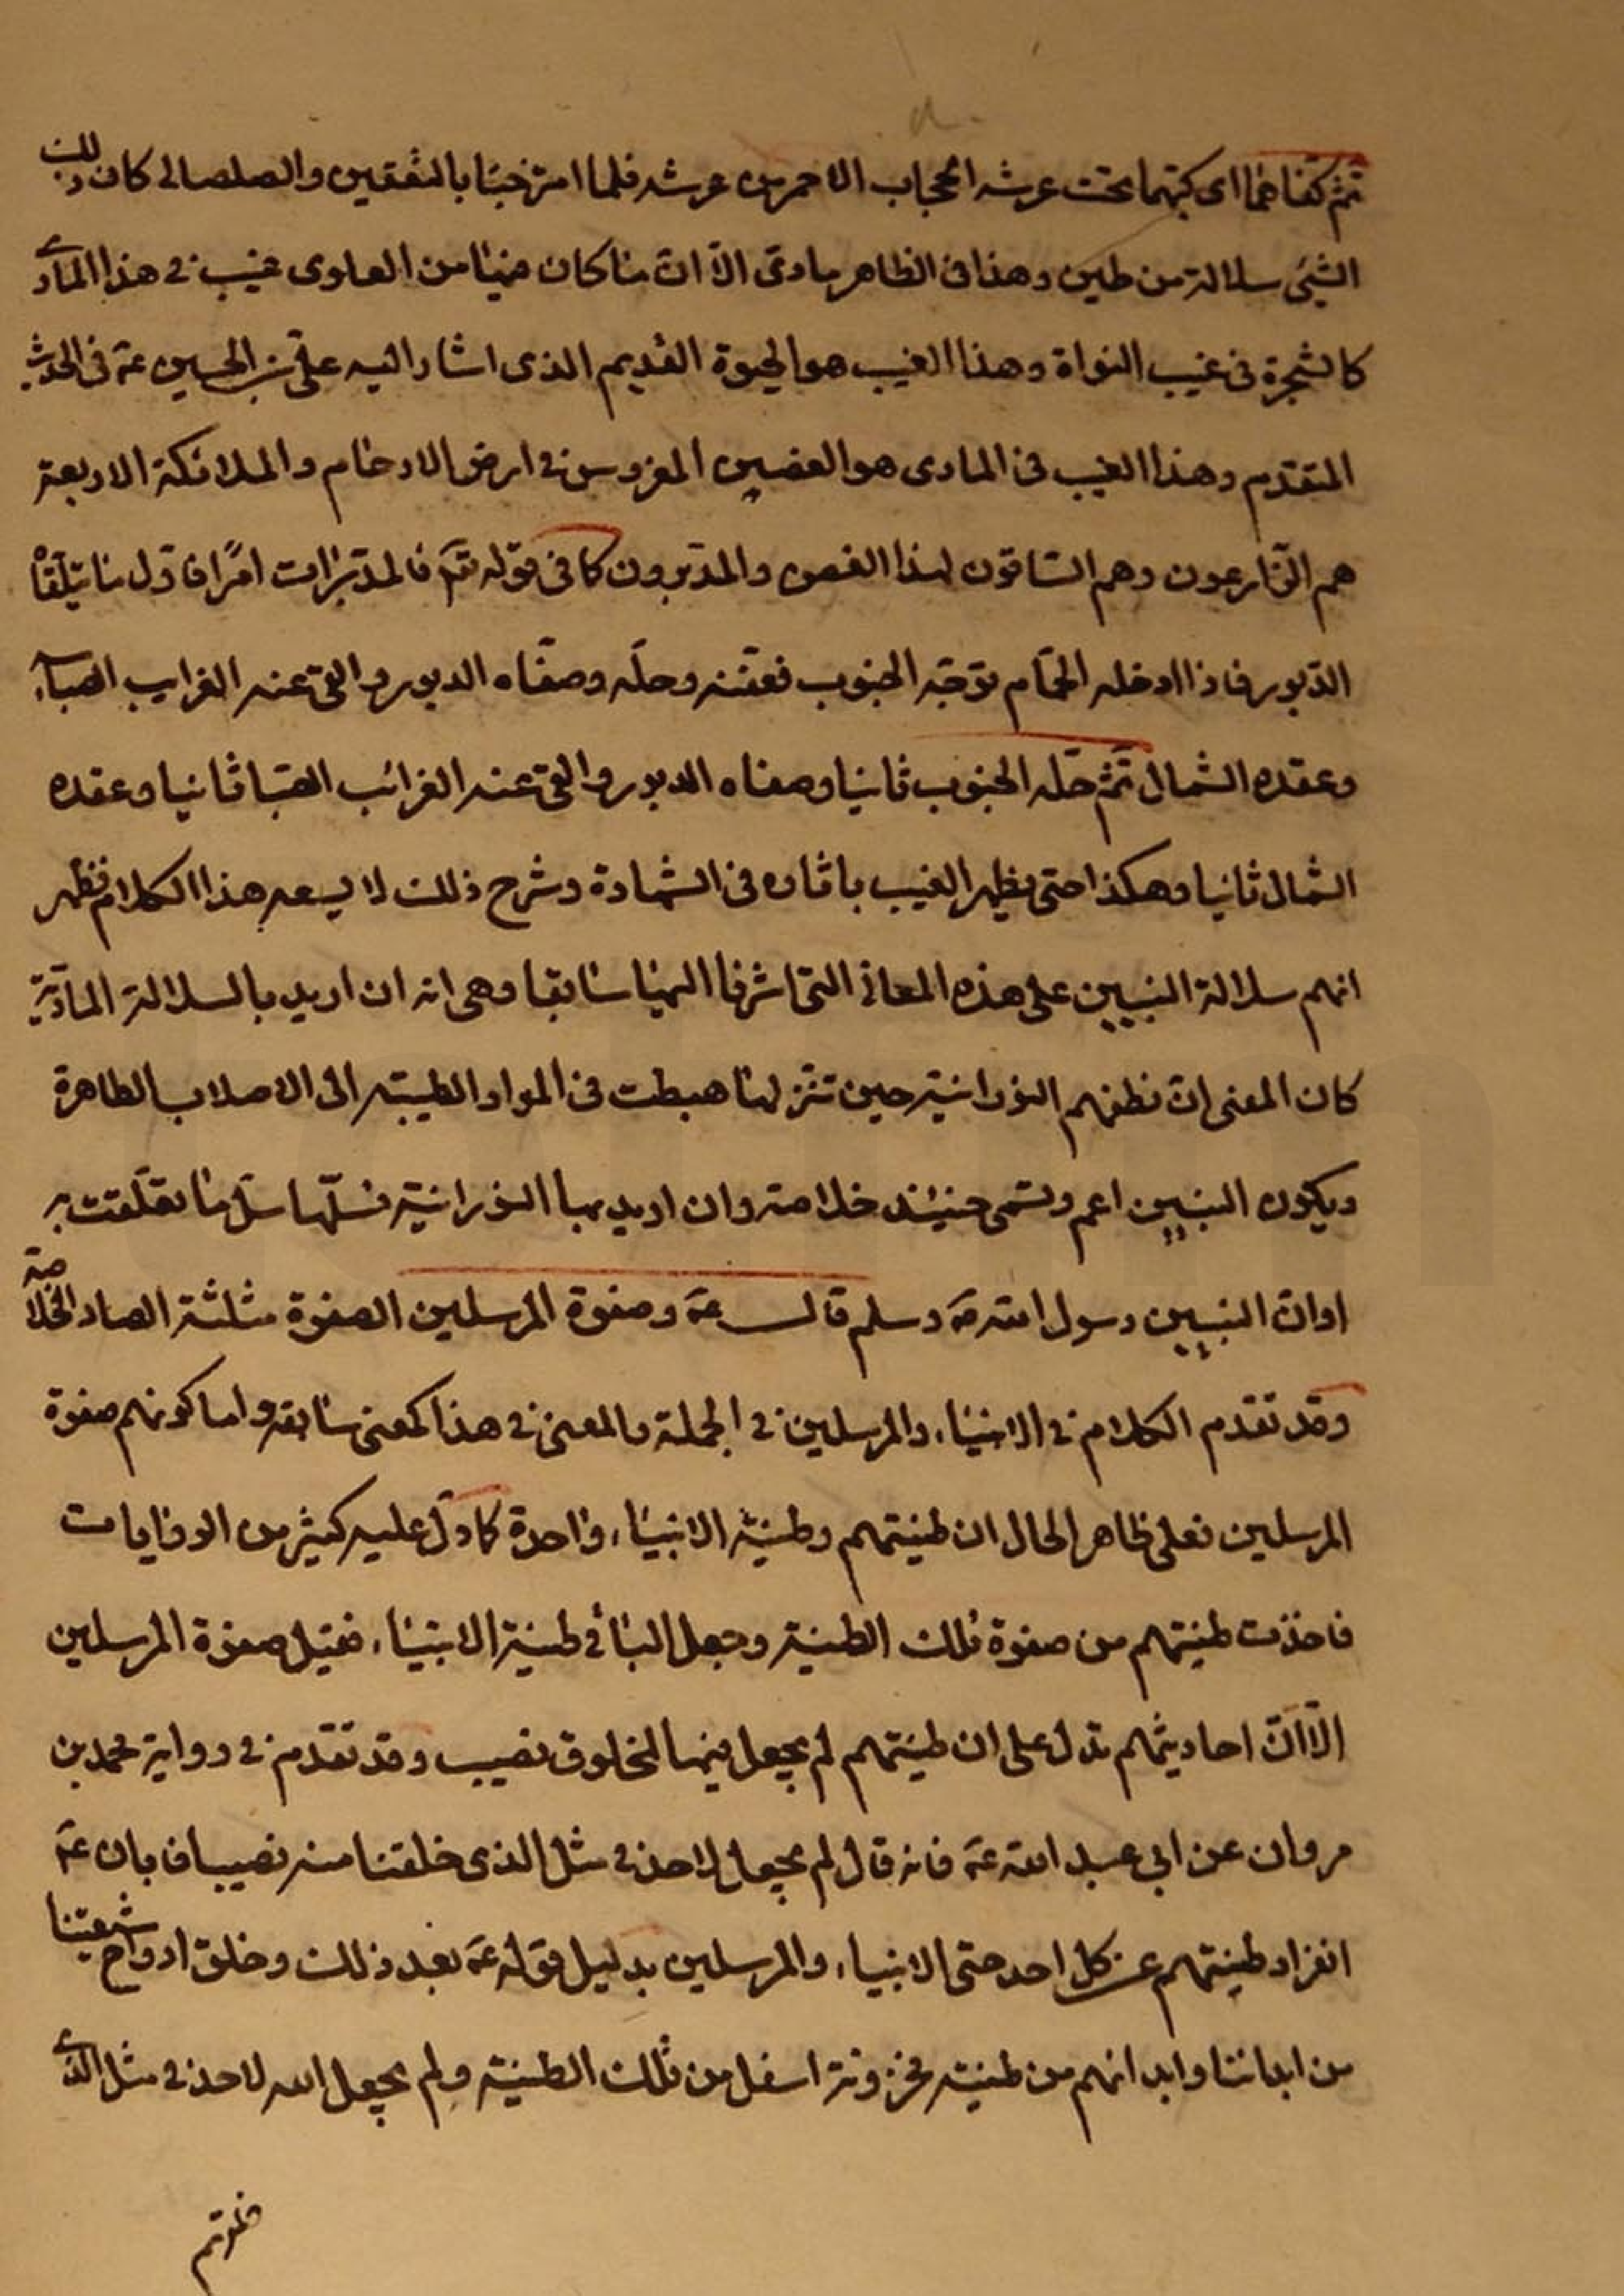 ثم كفاهما اى كبتهما تحت عرشه الحجاب الاحمر من عرشه فلما امتزجتا بالشفقين والصلصالى كان ذلك
الشىء سلالة من طين وهذا فى الظاهر مادى الّا انّ ما كان فيها من العلوى غيب فى هذا المادى
كالشجرة فى غيب النواة وهذا الغيب هو الحيوة القديم الذى اشار اليه علىّ بن الحسين عم فى الحديث
المتقدم وهذا الغيب فى المادى هو الغصين المغروس فى ارض الارحام والملائكة الاربعة
هم الزّارعون وهم السّاقون لهذا الغصن والمدبّرون كما فى قوله تعم فالمدبّرات امرًا فاول ما يتلقاه
الدّبور فاذا ادخله الحمّام توجّه الجنوب فعفّنه وحلّه وصفّاه الدبور والقى عنه الغرايب الصباء
وعقده الشمال ثمّ حلّه الجنوب ثانيا وصفاه الدبور والقى عنه الغرائب الصّبا ثانيا وعقده
الشمال ثانيا وهكذا حتى يظهر الغيب باثاره فى الشهادة وشرح ذلك لا يسعه هذا الكلام فظهر
انهم سلالة النبيين على هذه المعانى التى اشرنا اليها سابقا وهى انه ان اريد بالسلالة المادّية
كان المعنى انّ نطفهم النورانية حين تنزلها هبطت فى المواد الطيبة الى الاصلاب الطاهرة
ويكون النبيين اعم وتسمى حينئذ خلاصة وان اريد بها النورانية فسلّها سلّ ما تعلّقت به
او انّ النبيين رسول الله صه وسلم قال عم وصفوة المرسلين الصفوة مثلثة الصاد الخلاصة
وقد تقدم الكلام فى الانبياء والمرسلين فى الجملة والمعنى فى هذا كمعنى سابقه واما كونهم صفوة
المرسلين فعلى ظاهر الحال ان طينتهم وطينة الانبياء واحدة كما دلّ عليه كثير من الروايات
فاخذت طينتهم من صفوة تلك الطينة وجعل الباقى طينة الانبياء فقيل صفوة المرسلين
الّا انّ احاديثهم تدل على ان طينتهم لم يجعل فيها لمخلوق نصيب وقد تقدم فى رواية محمد بن
مروان عن ابى عبد الله عم فانه قال لم يجعل لاحد فى مثل الذى خلقنا منه نصيبا فابان عم
انفراد طينتهم عن كل احد حتى الانبياء والمرسلين بدليل قوله عم بعد ذلك وخلق ارواح شيعتنا
من ابداننا وابدانهم من طينة مخزونة اسفل من تلك الطينة ولم يجعل الله لاحد فى مثل الذى
خلقهم